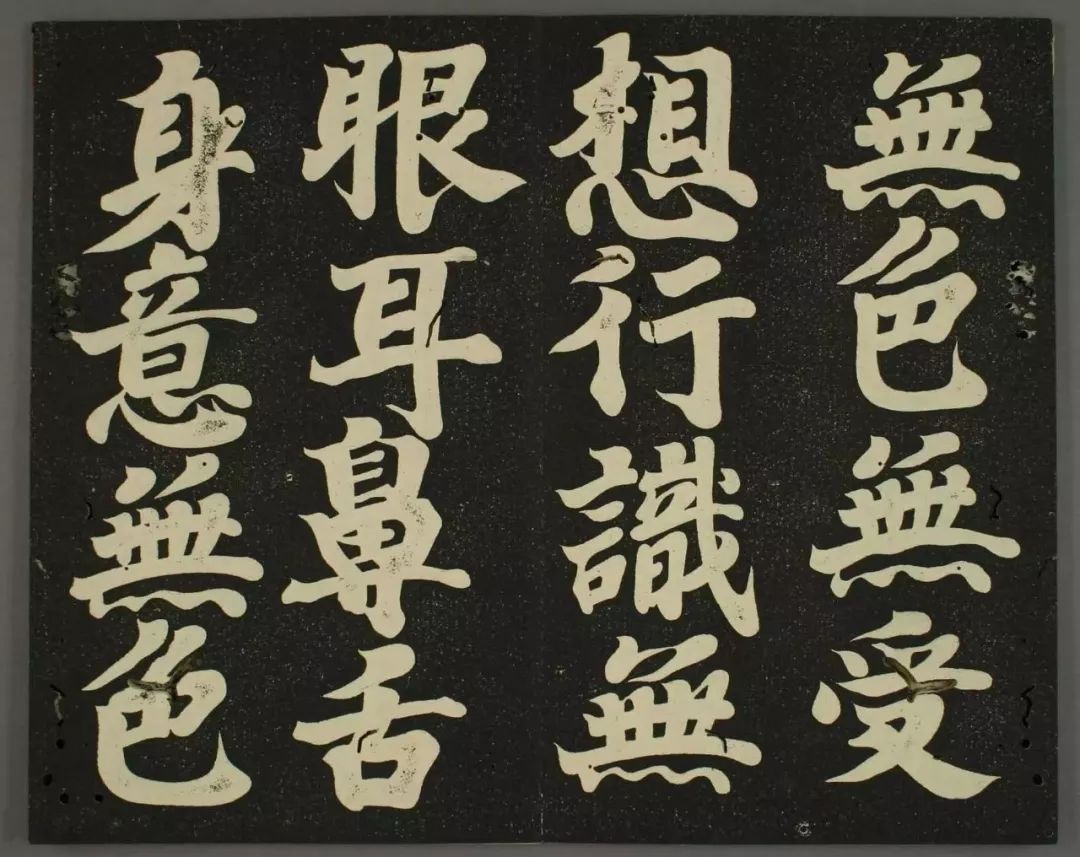 無色無受
想行識無
眼耳鼻舌
身意無色